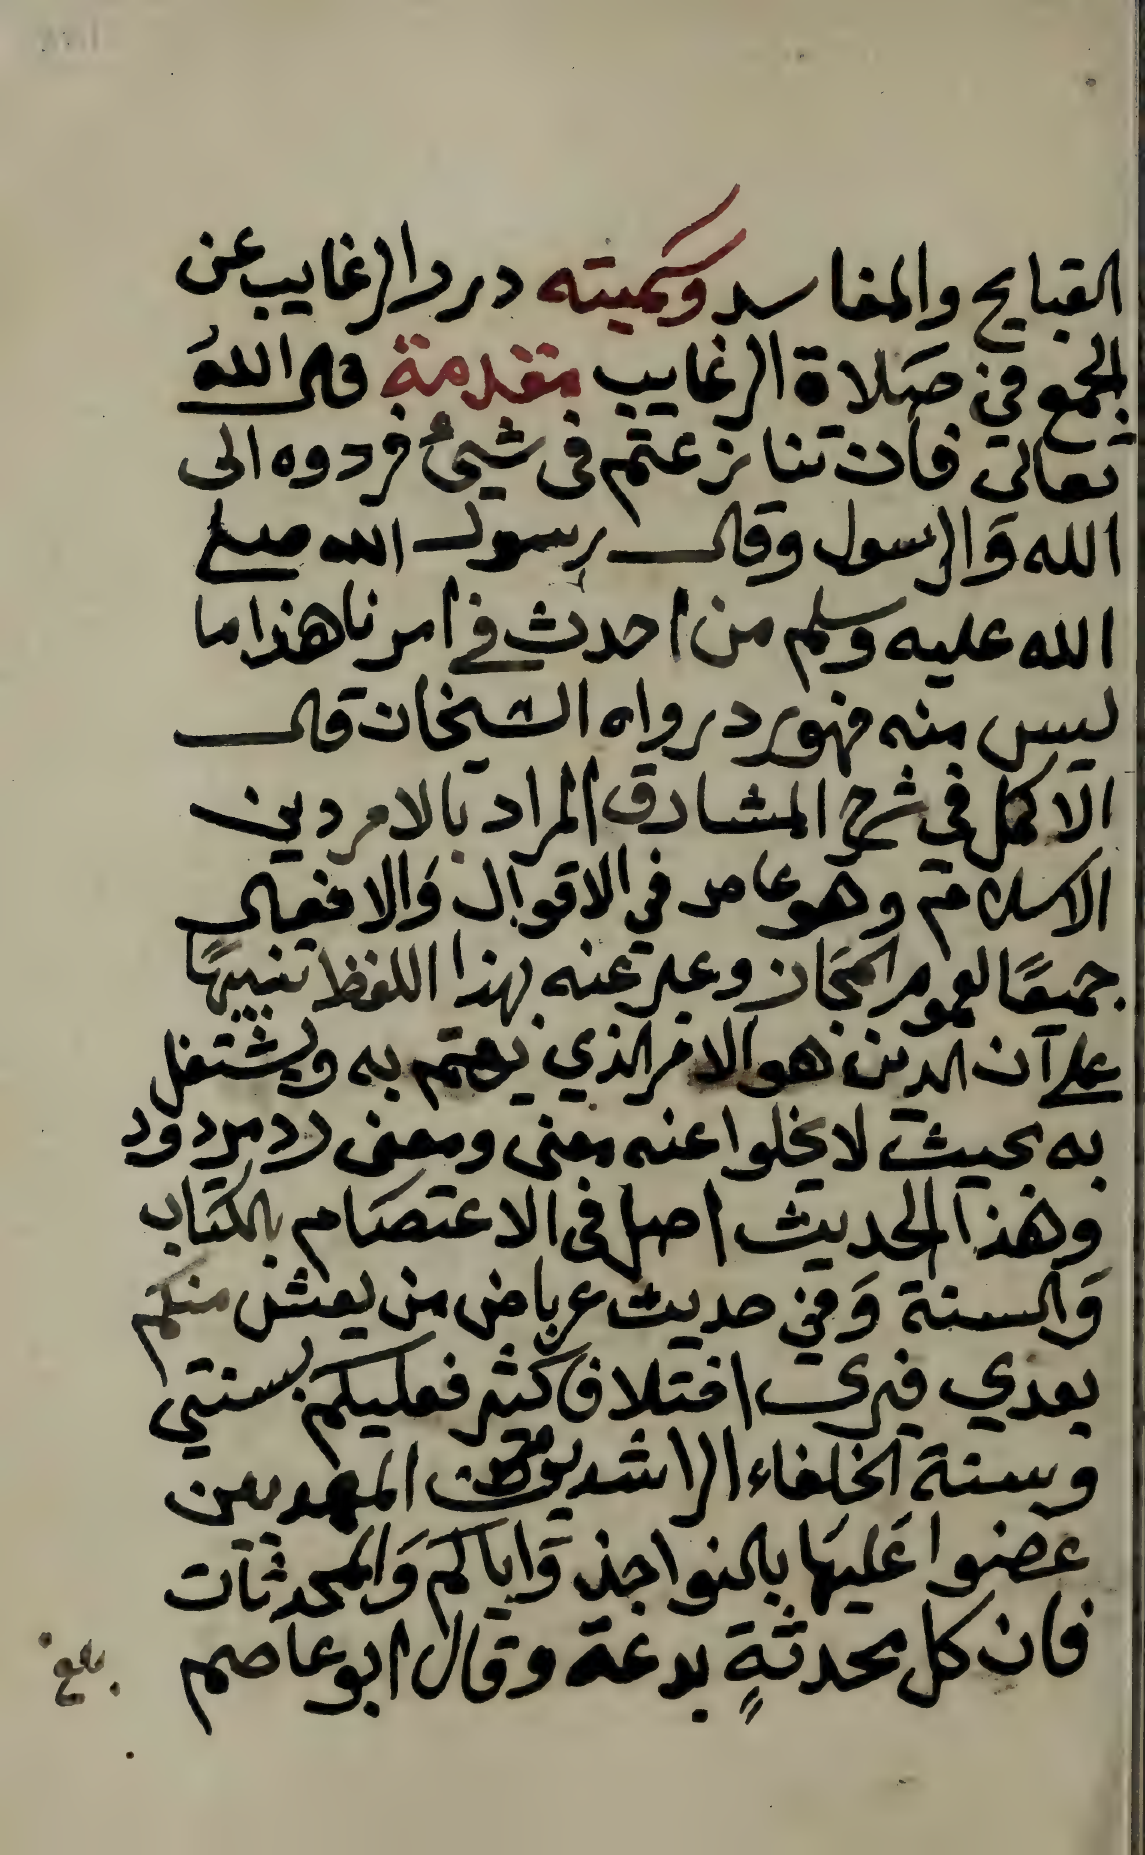 القبايح والمفاسد وسميته دردالرغايب عن
الجمع في صلاة الرغايب مقدمة قال اللهُ
تعالى فان تنازعتم في شيئ فردوه الى
الله وَالرسول وقال رسول الله صلى
الله عليه وسلم من احدث في امرنا هذا ما
ليس منه فهو رد رواه الشيخان قال
الاكمل في شرح المشارق المراد بالامر دين
الاسلام وهو عامد في الاقوال وَالافعال
جميعًا لعموم المجاز وعبر عنه بهذا اللفظ تنبيهًا
على ان الدين هو الامر الذي يهتم به ويشتغل
به بحيث لا يخلوا عنه معنى ومعنى رد مردود
وهذا الحديث اصل في الاعتصام بالكتاب
وَالسنة وَفي حديث عرباض من يعش منكم
بعدي فيرى اختلاف كثير فعليكم بسنتي
وسنة الخلفاء الراشدين المهديين
عضوا عَليهَا بالنواجذ وَاياكم وَالمحدثات
فان كل محدثةٍ بدعة وقال ابو عاصم
بلغ